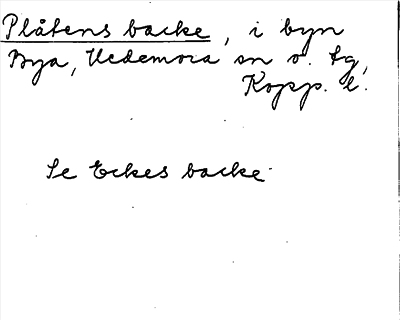 Plåtens backe, i byn
Bya, Hedemora sn o. tg,
Kopp. l.
Se Eckes backe